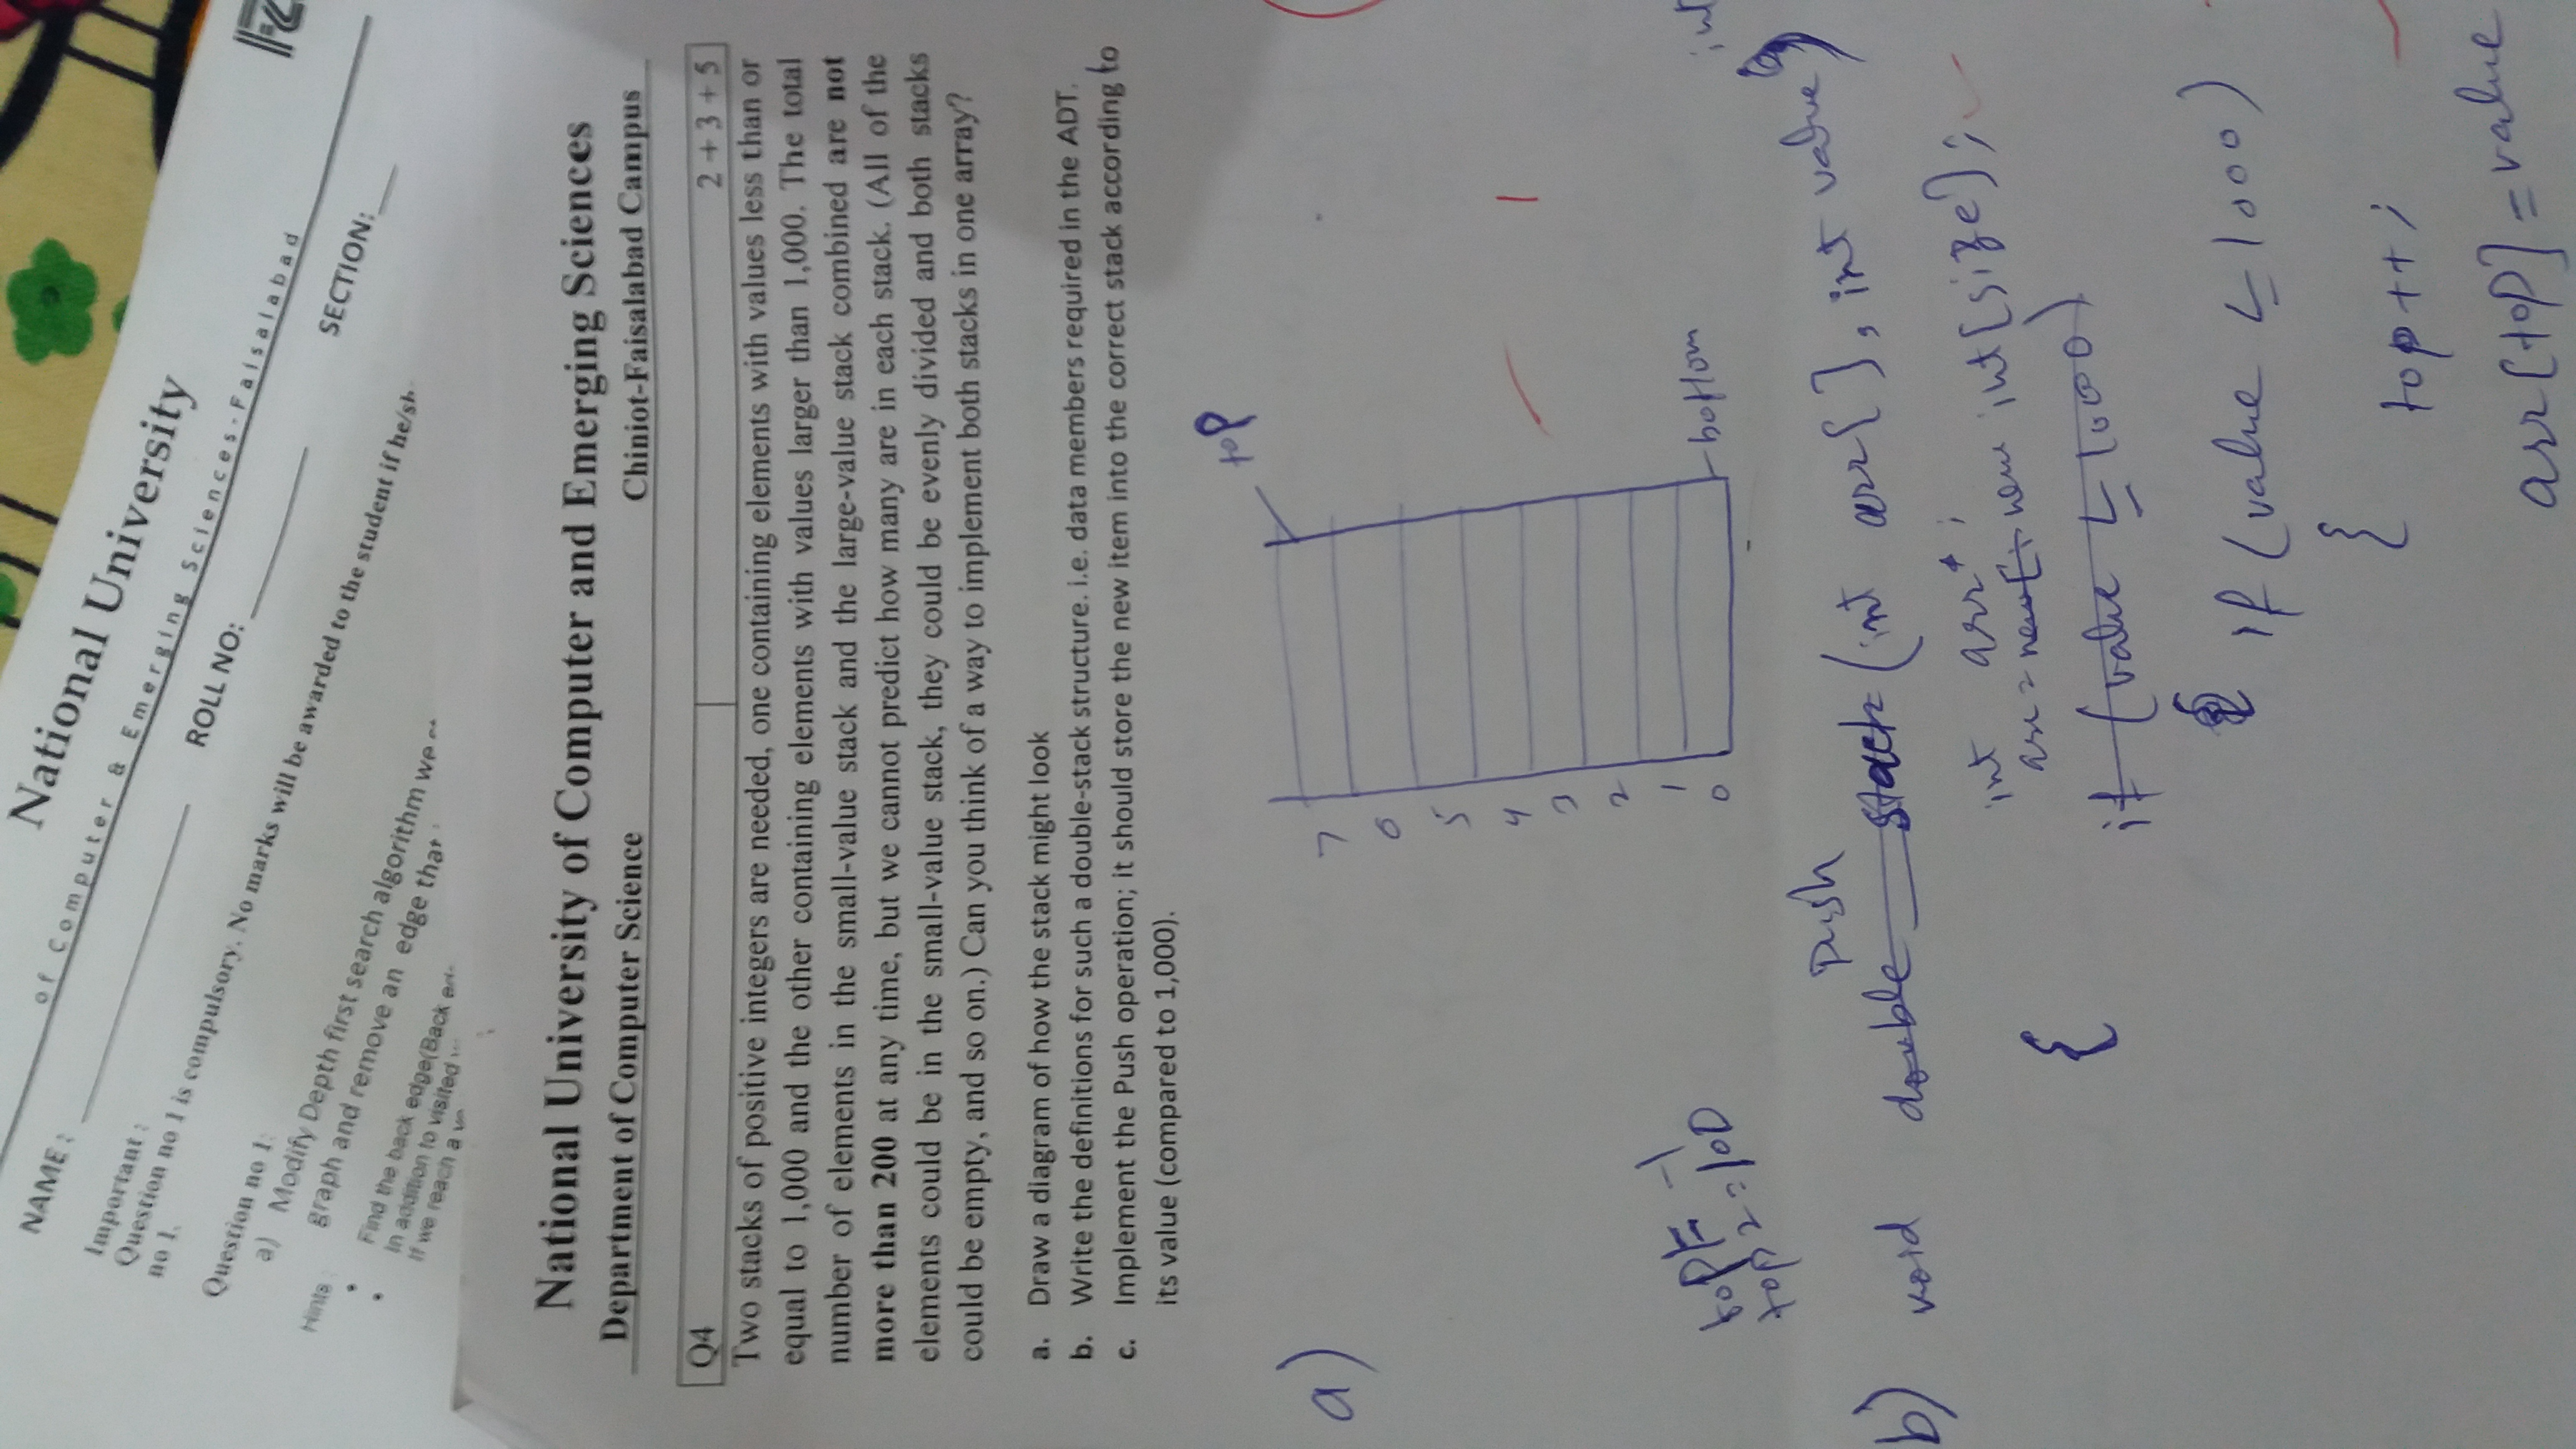 National University
of Computer & Emerging Sciences-Faisalabad
NAME :
ROLL NO:
SECTION:
Important :
Question no 1 is compulsory. No marks will be awarded to the student if he/sh
no 1.
Question no 1:
a) Modify Depth first search algorithm we
graph and remove an edge that
Hints
Find the back edge(Back
In addition to visited
If we reach a
National University of Computer and Emerging Sciences
Department of Computer Science Chiniot-Faisalabad Campus
Q4 2 + 3 + 5
Two stacks of positive integers are needed, one containing elements with values less than or
equal to 1,000 and the other containing elements with values larger than 1,000. The total
number of elements in the small-value stack and the large-value stack combined are not
more than 200 at any time, but we cannot predict how many are in each stack. (All of the
elements could be in the small-value stack, they could be evenly divided and both stacks
could be empty, and so on.) Can you think of a way to implement both stacks in one array?
a. Draw a diagram of how the stack might look
b. Write the definitions for such a double-stack structure. i.e. data members required in the ADT.
c. Implement the Push operation; it should store the new item into the correct stack according to
its value (compared to 1,000).
top
a)
7
6
5
4
3
2
1
0
bottom
1
top1= -1
top2=100
int
push
b) void double stack (int arr[], int value)
int arr*;
{ arr = new[ new int[size];
if (value ≤ 1000)
{ if (value ≤ 1000)
{
top++;
arr[top] = value